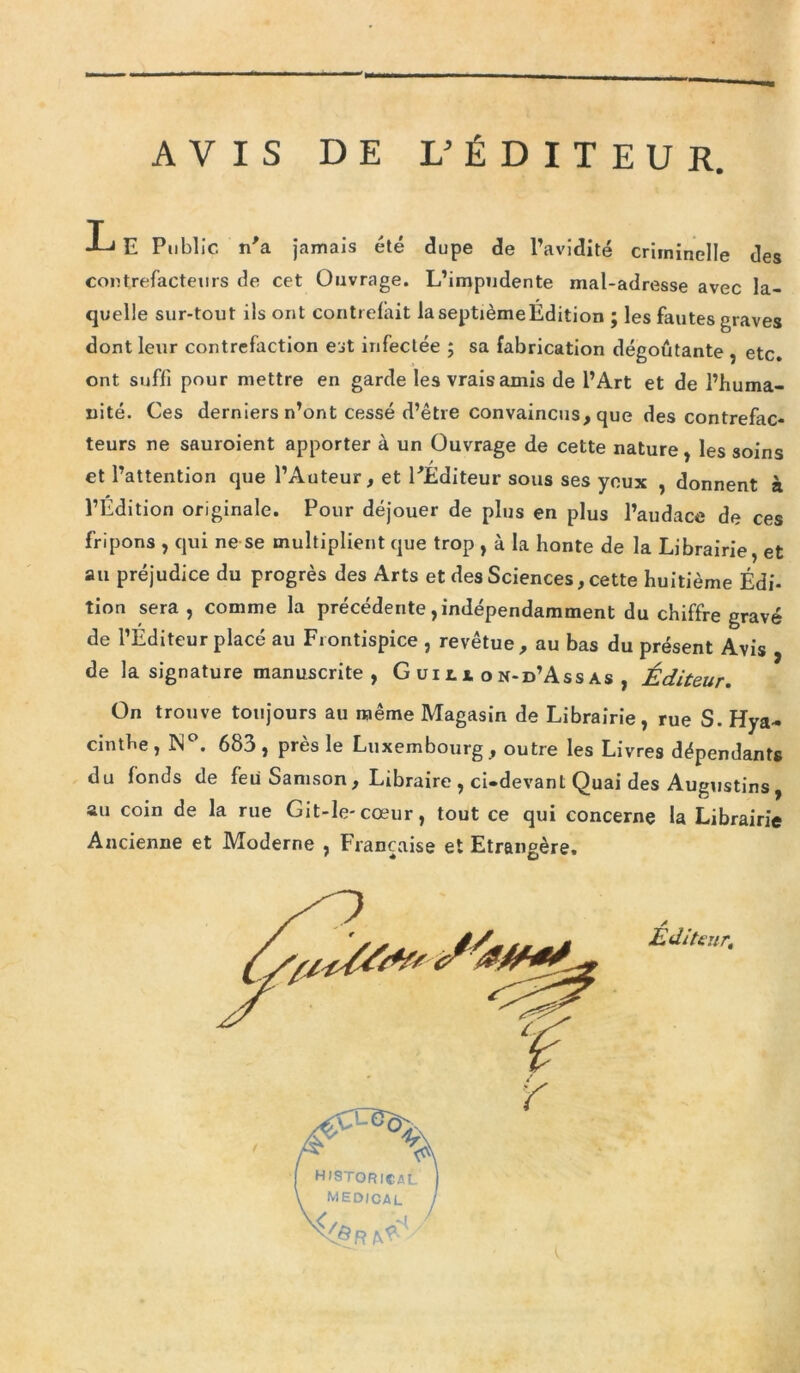 AVIS DE L'ÉDITEUR.
LE Public n'a jamais été dupe de l'avidité criminelle des
contrefacteurs de cet Ouvrage. L'impudente mal-adresse avec la-
quelle sur-tout ils ont contrefait la septième Édition ; les fautes graves
dont leur contrefaction est infectée ; sa fabrication dégoûtante , etc.
ont suffi pour mettre en garde les vrais amis de l'Art et de l'huma-
nité. Ces derniers n'ont cessé d'être convaincus, que des contrefac-
teurs ne sauroient apporter à un Ouvrage de cette nature , les soins
et l'attention que l'Auteur, et l'Éditeur sous ses yeux , donnent à
l'Édition originale. Pour déjouer de plus en plus l'audace de ces
fripons , qui ne se multiplient que trop , à la honte de la Librairie, et
au préjudice du progrès des Arts et des Sciences, cette huitième Édi-
tion sera , comme la précédente, indépendamment du chiffre gravé
de l'Éditeur placé au Frontispice , revêtue, au bas du présent Avis ,
de la signature manuscrite , GUILLON-D'ASSAS , Éditeur.
On trouve toujours au même Magasin de Librairie, rue S. Hya-
cinthe, N°. 683, près le Luxembourg, outre les Livres dépendants
du fonds de feu Samson, Libraire , ci-devant Quai des Augustins,
au coin de la rue Git-le-cœur, tout ce qui concerne la Librairie
Ancienne et Moderne , Française et Etrangère.
Guillon d'assas
Éditeur.
WELLCOME
HISTORICAL
MEDICAL
LIBRARY